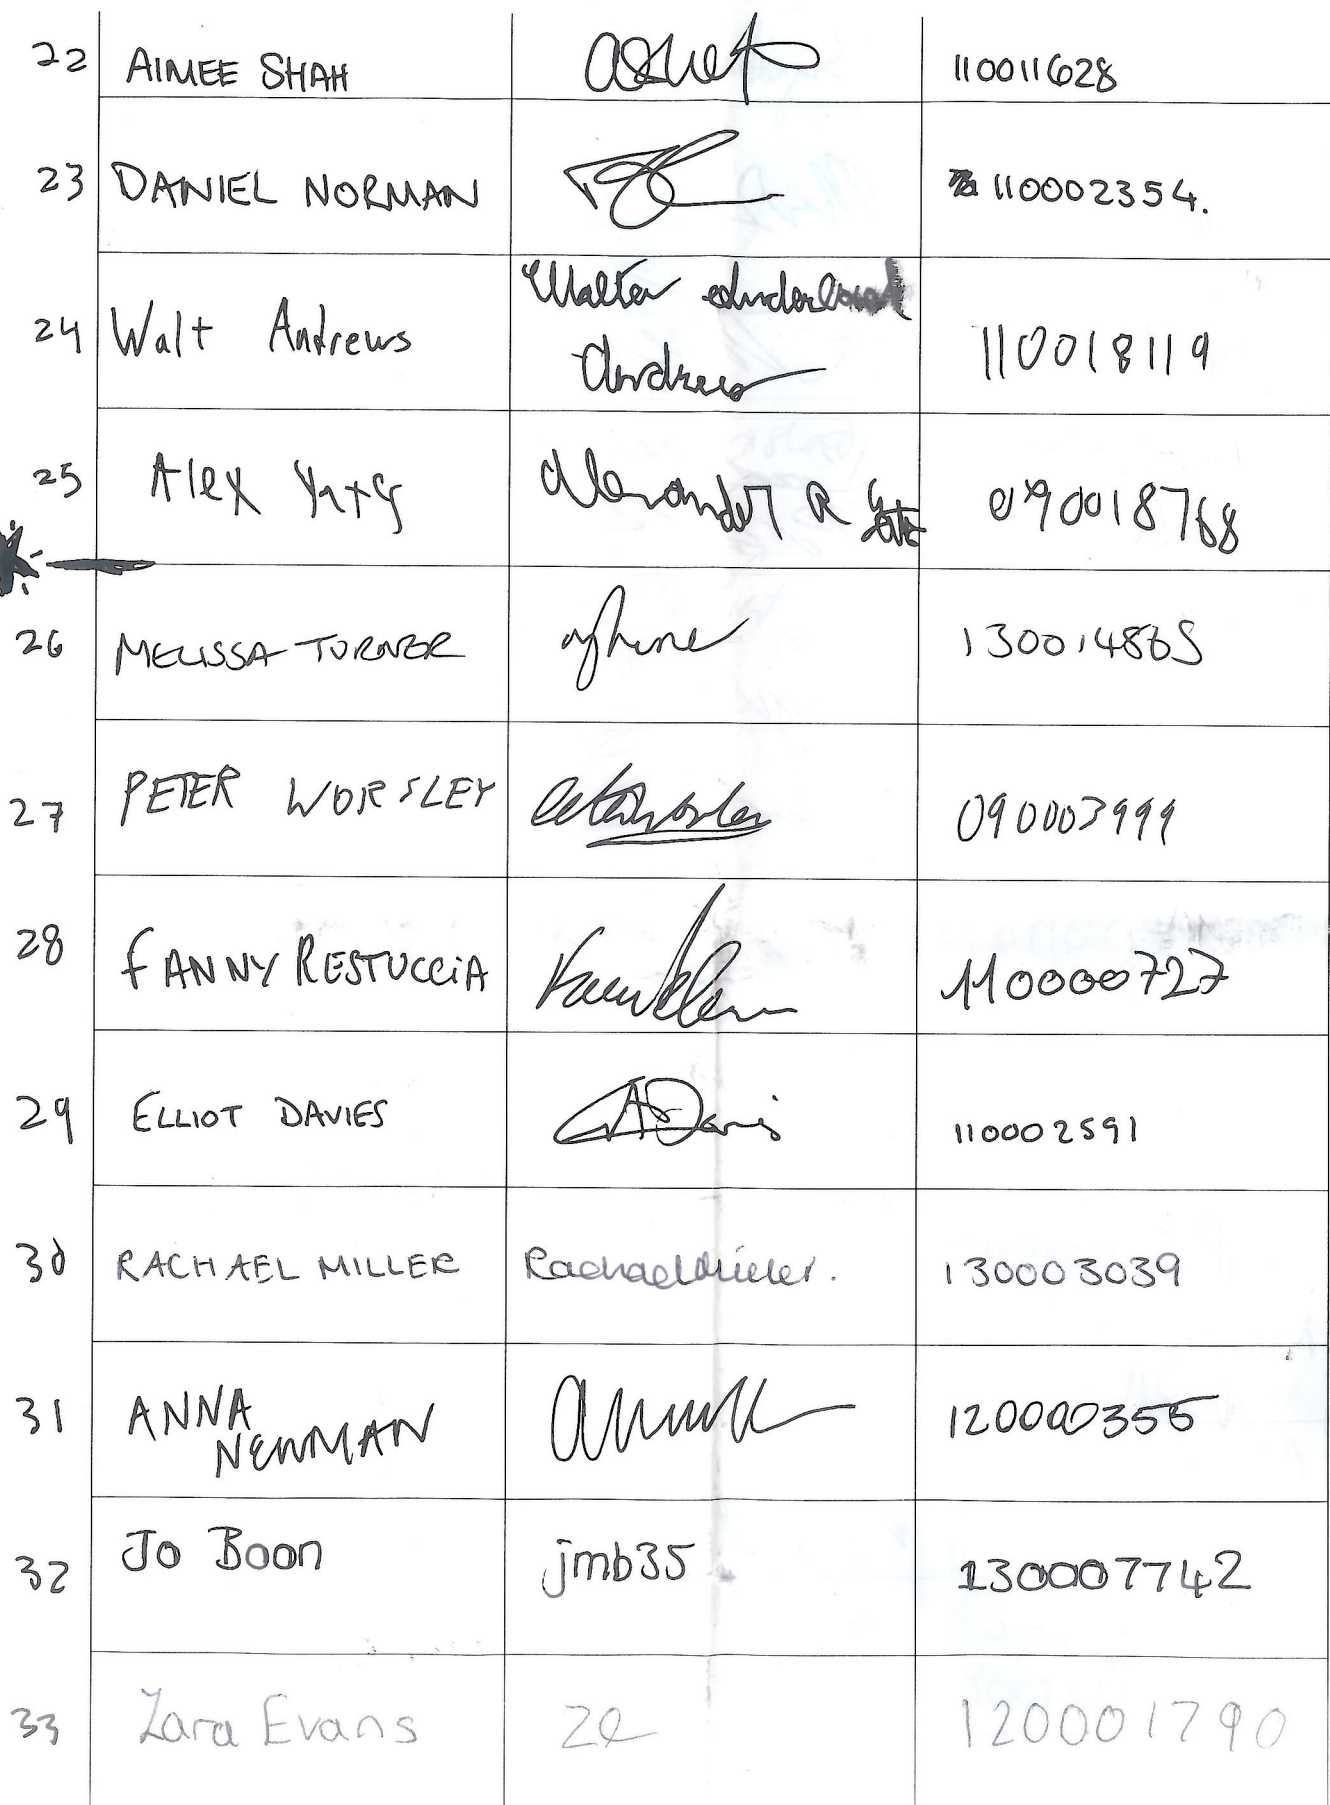 22 AIMEE SHAH 110011628
23 DANIEL NORMAN 110002354.
24 Walt Andrews Walter
Andrews 110018119
25 Alex Yates Alexander R 090018768
26 MELISSA TURNER 130014865
27 PETER WORSLEY 090003999
28 FANNY RESTUCCIA 110000727
29 ELLIOT DAVIES Davies 110002591
30 RACHAEL MILLER Rachael Miller. 130003039
31 ANNA
NEWMAN 120000355
32 Jo Boon jmb35 130007742
33 Zara Evans ZE 120001790